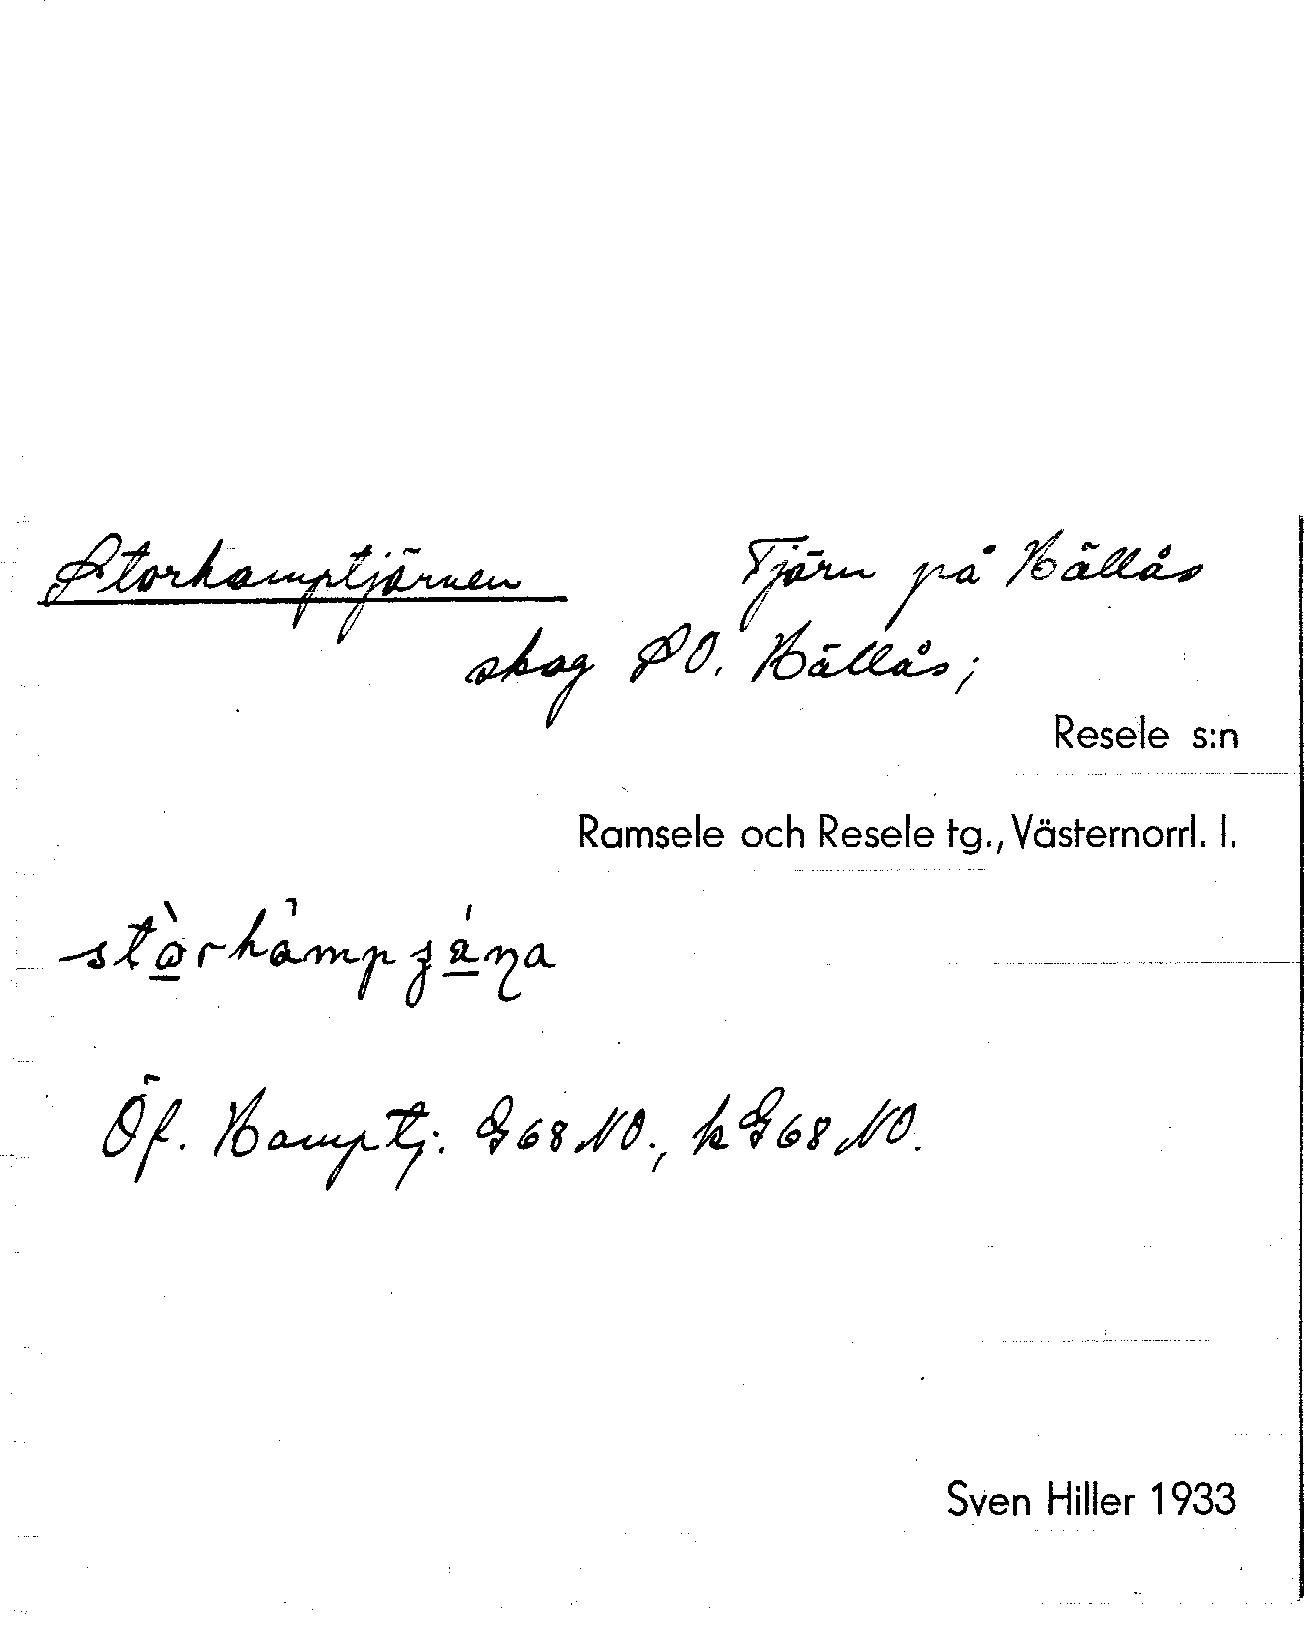 Storhamptjärnen Tjärn på Hällås
skog SO. Hällås;
Resele s:n
Ramsele och Resele tg., Västernorrl. l.
Öf. Hamptj. G68NO., kG68NO.
Sven Hiller 1933